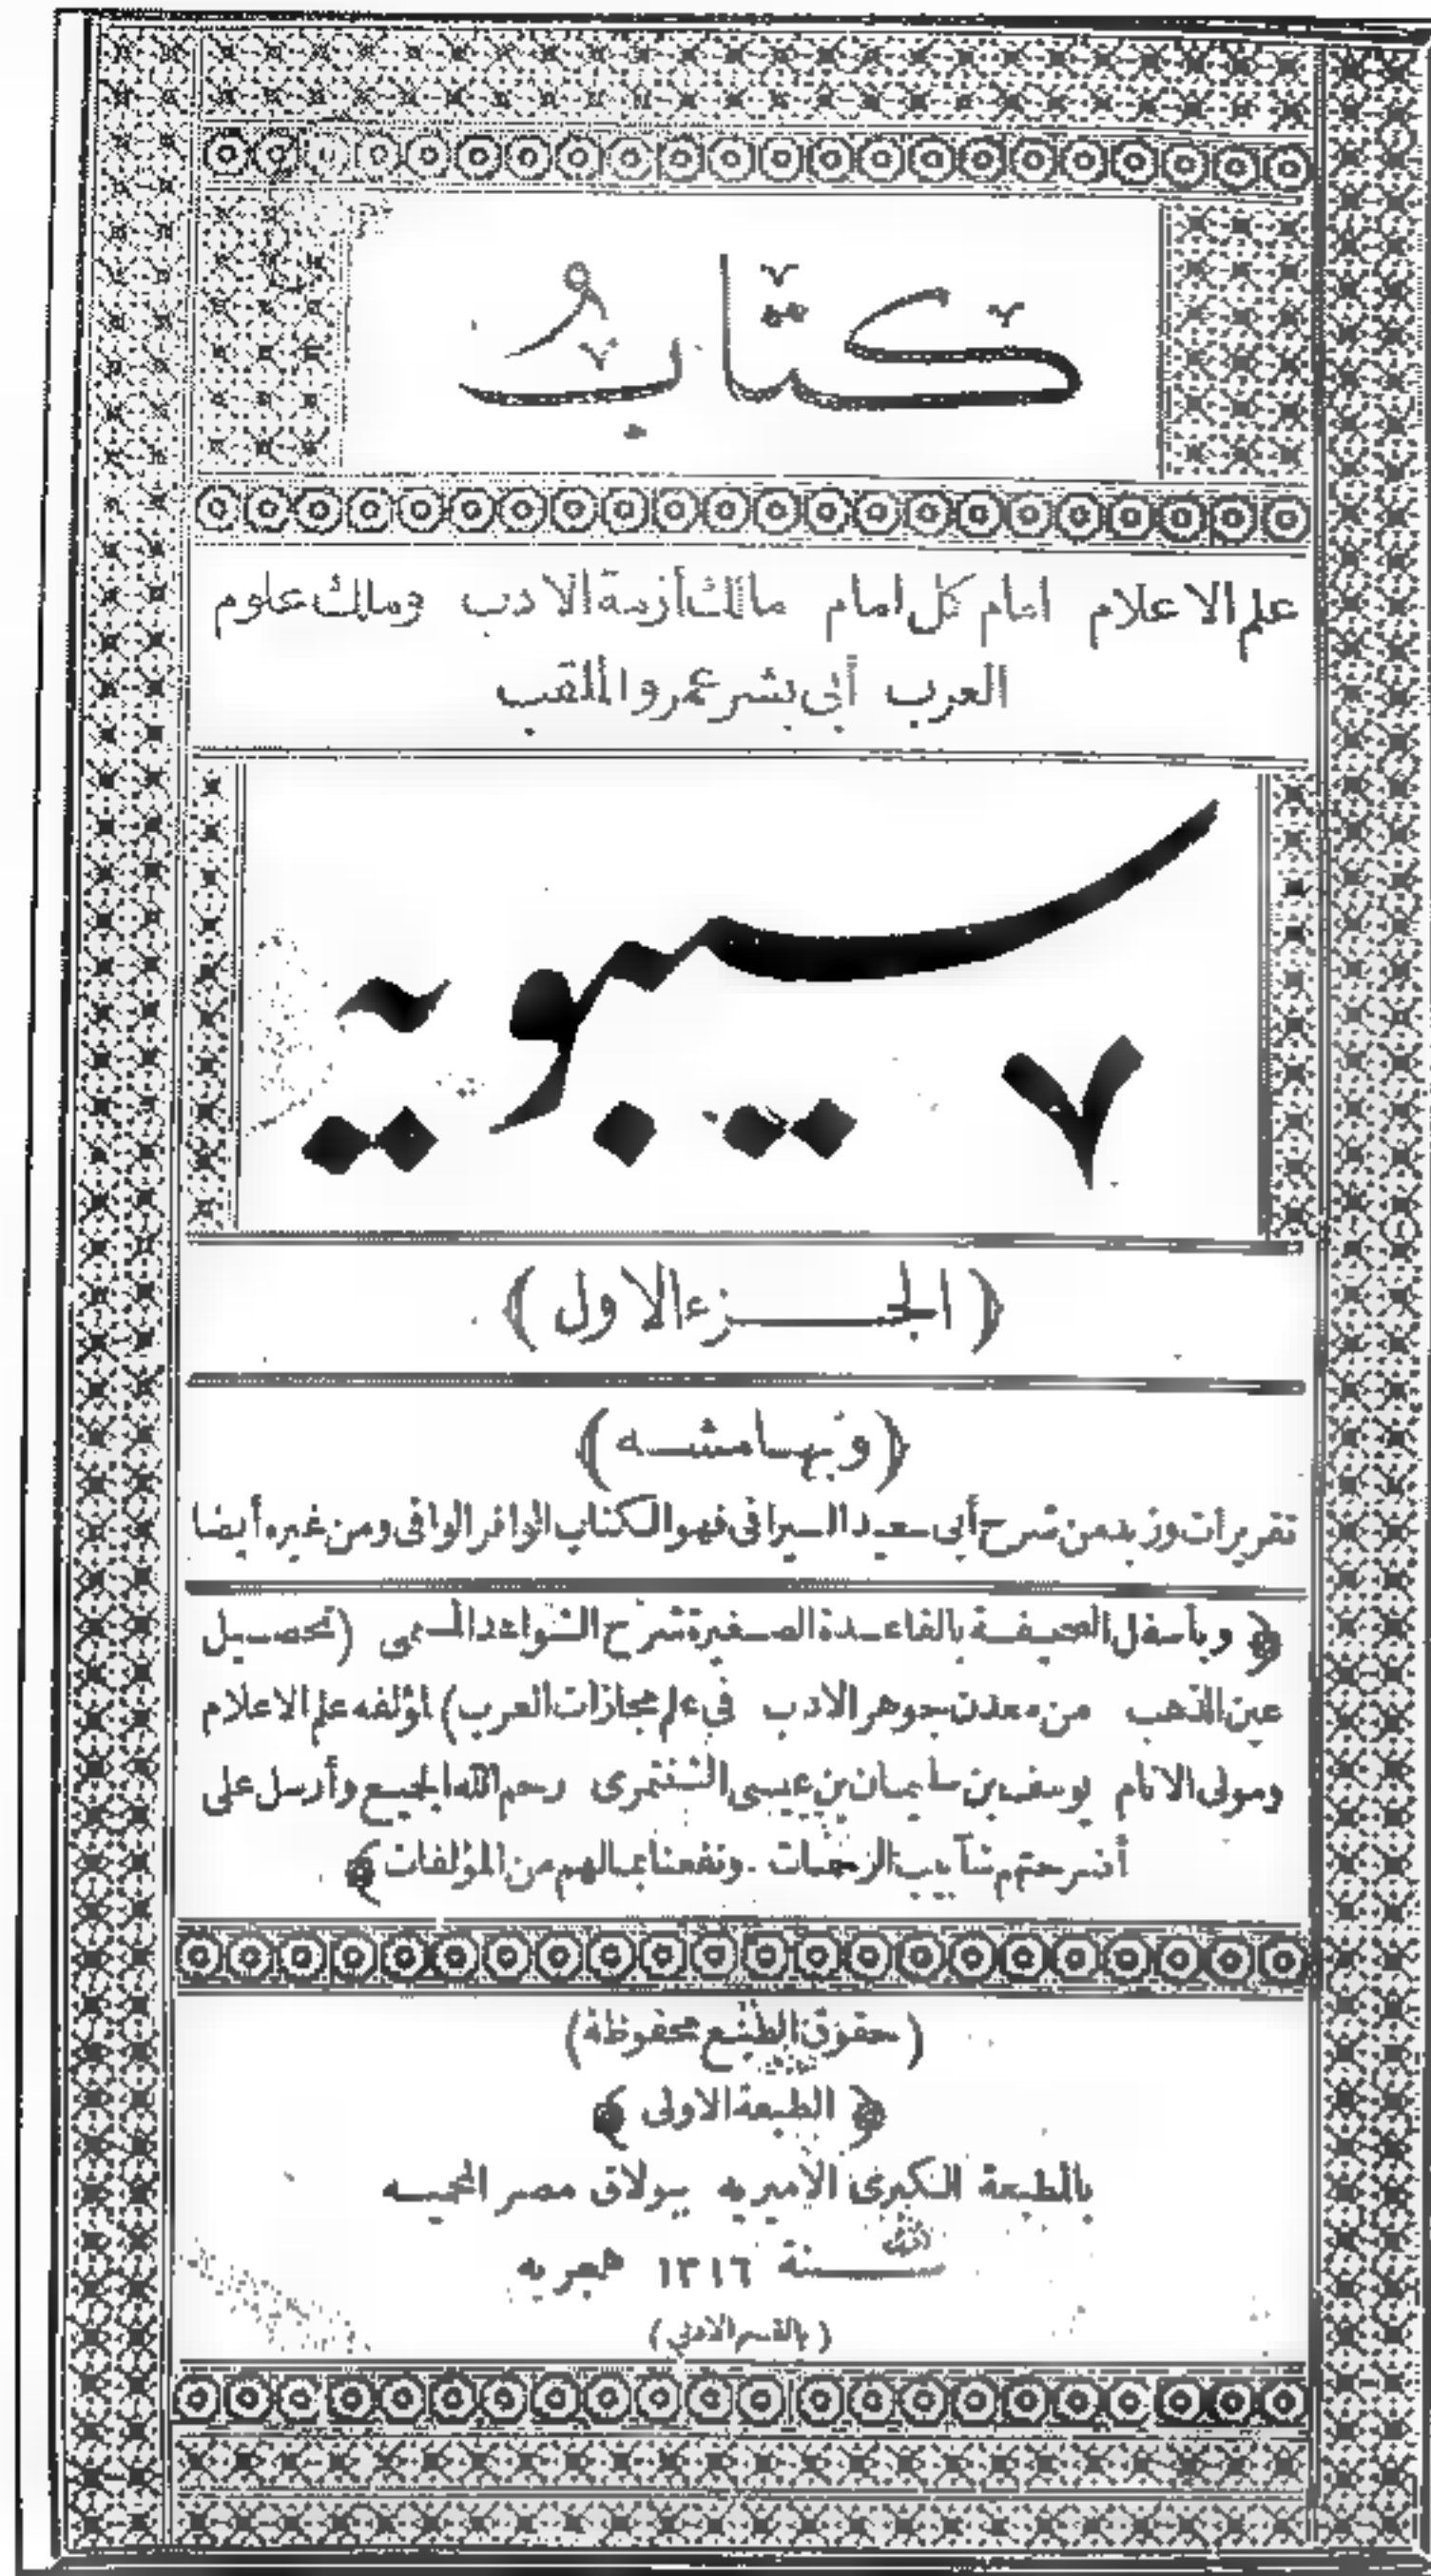 كتابُ
علم الاعلام امام كل امام مالك أزمة الادب وملك علوم
العرب أبى بشر عمرو الملقب
سيبويه
(الجزء الاول)
(وبهامشه)
تقريرات وزبد من شرح أبى سعيد السيرافى فهو الكتاب الوافر الوافى ومن غيره أيضا
﴿ وبأسفل الصحيفة بالقاعدة الصغيرة شرح الشواهد المسمى (تحصيل
عين الذهب من معدن جوهر الادب فى علم مجازات العرب) لمؤلفه علم الاعلام
ومولى الانام يوسف بن سليمان بن عيسى الشنتمرى رحم الله الجميع وأرسل على
أضرحتهم شآبيب الرحمات ونفعنا بمالهم من المؤلفات ﴾
(حقوق الطبع محفوظة)
﴿ الطبعة الاولى ﴾
بالمطبعة الكبرى الاميريه ببولاق مصر المحميه
سنة ١٣١٦ هجريه
(بالقسم الادبى)